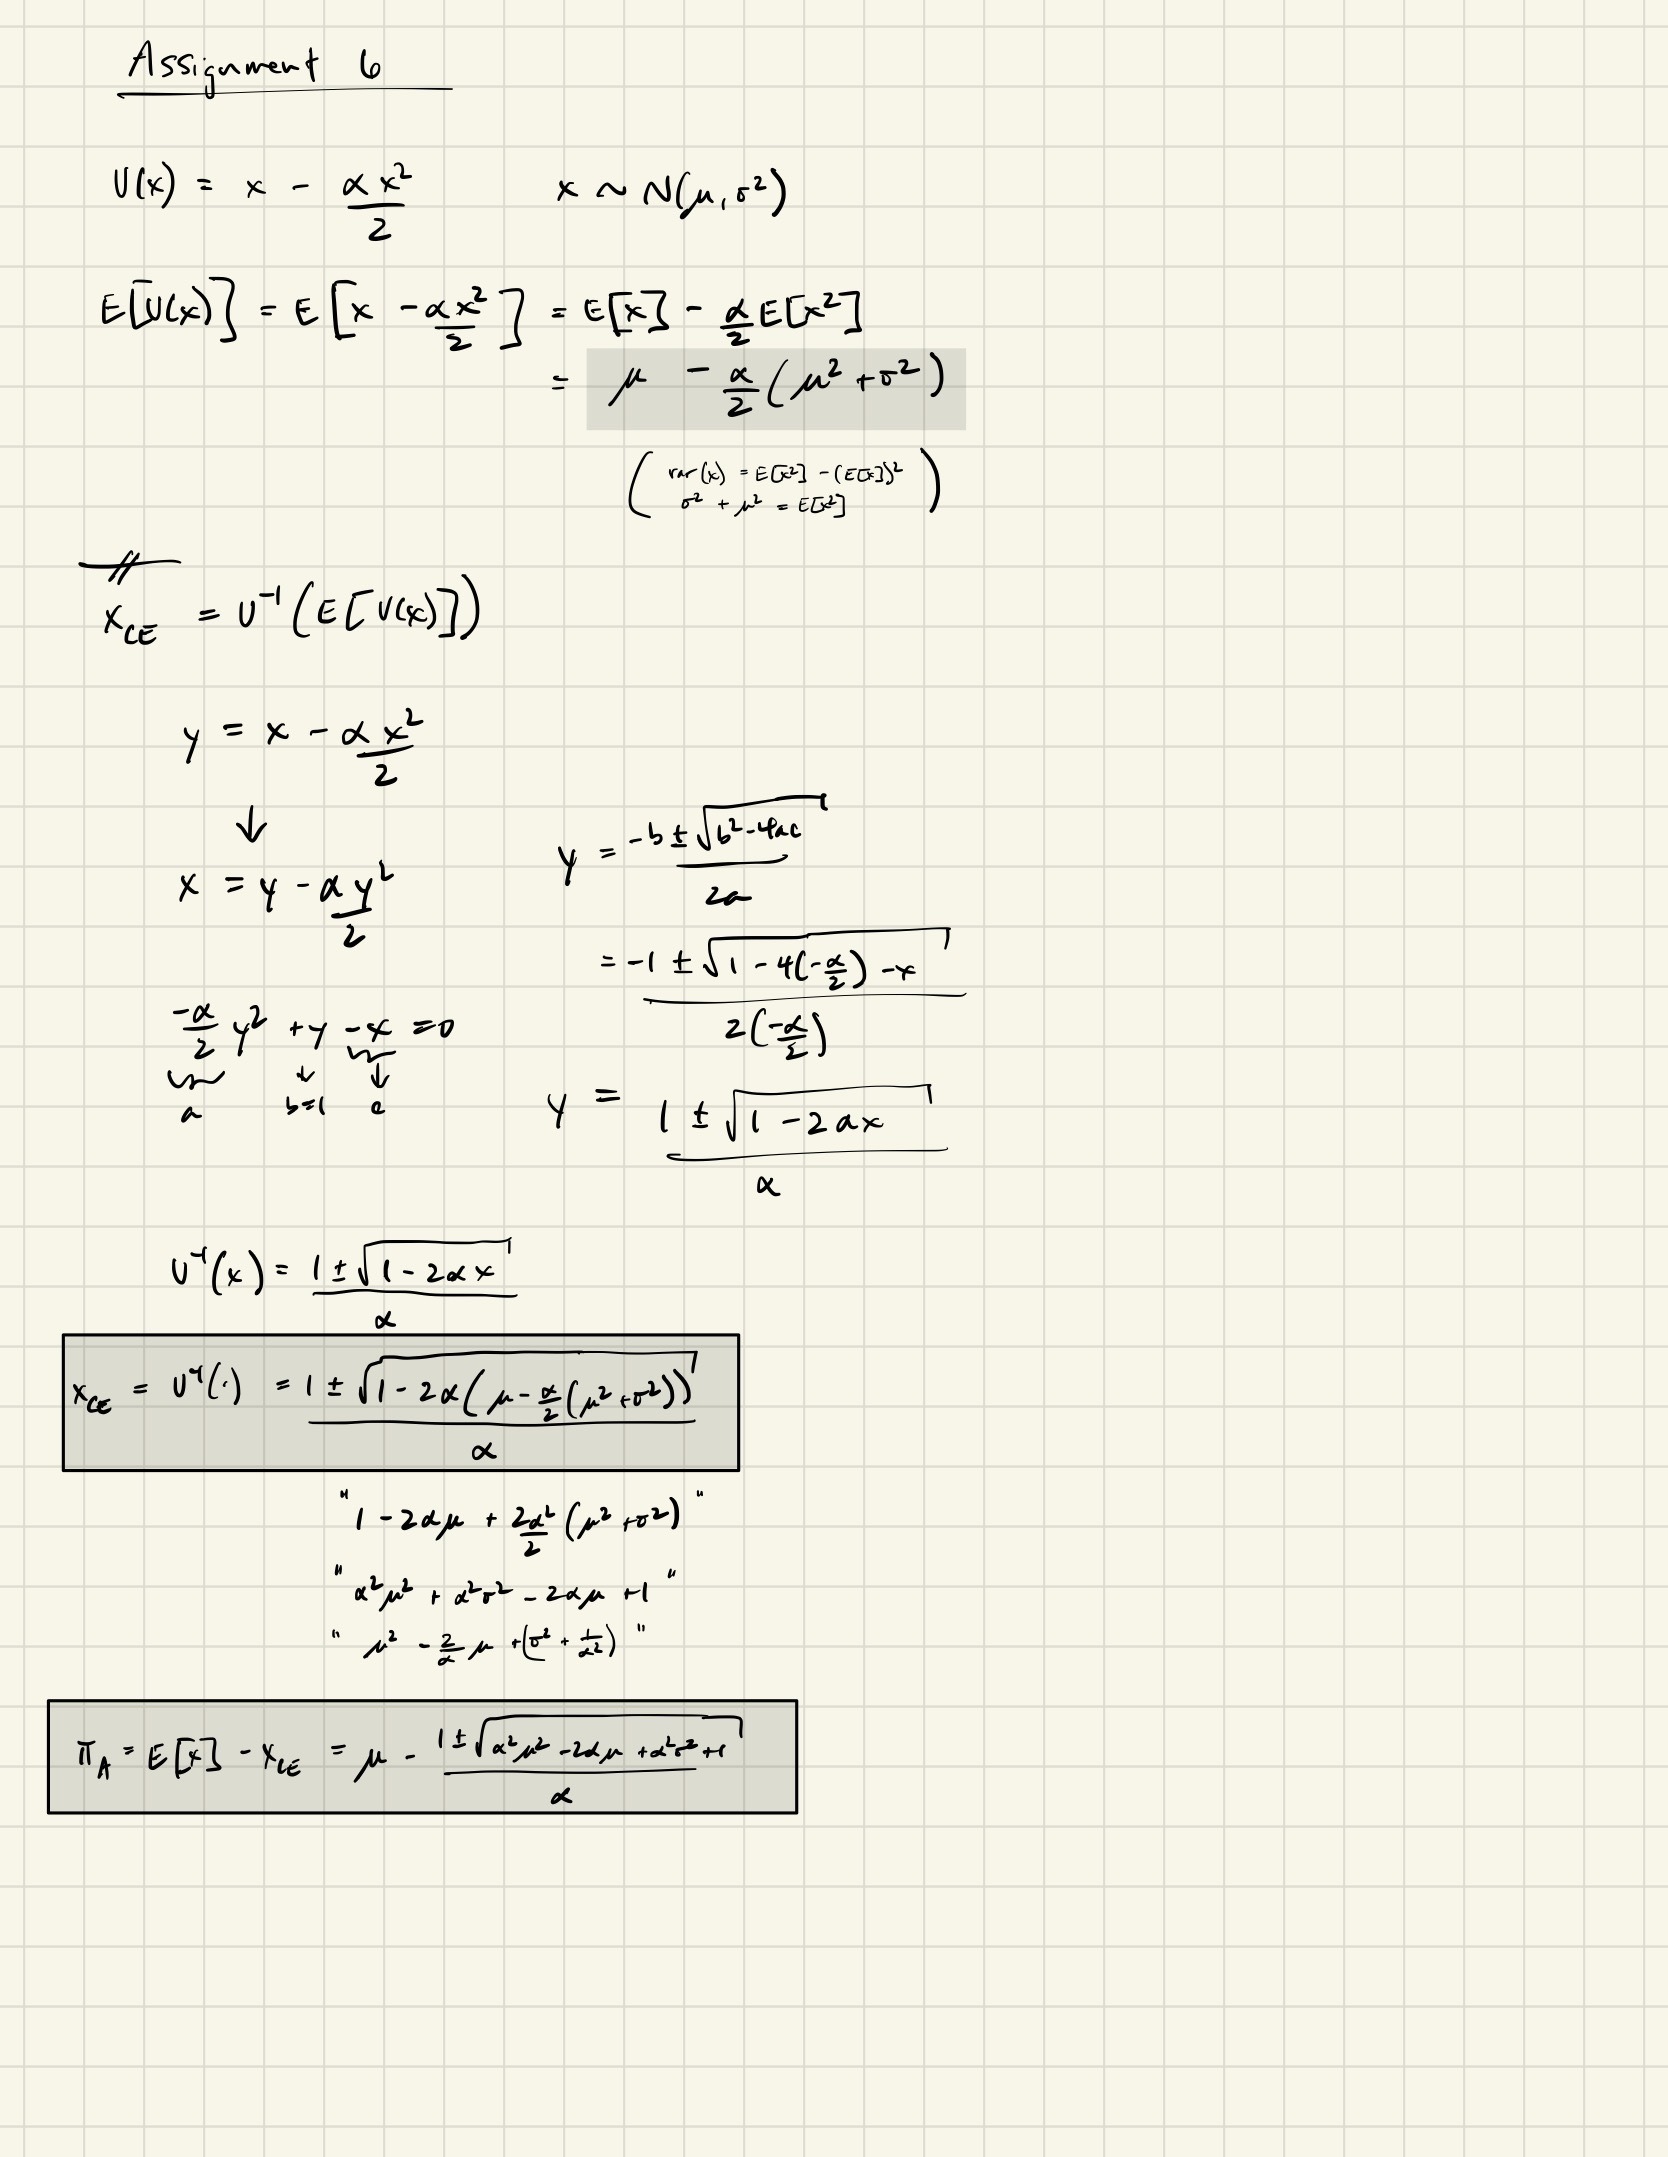 Assignment 6
U(x) = x - αx²/2    x ~ N(μ, σ²)
E[U(x)] = E[x - αx²/2] = E[x] - α/2 E[x²]
= μ - α/2 (μ² + σ²)
(var(x) = E[x²] - (E[x])²
σ² + μ² = E[x²])
x_CE = U⁻¹(E[U(x)])
y = x - αx²/2
↓
x = y - αy²/2
-α/2 y² + y - x = 0
a    b=1    c
y = (-b ± √(b² - 4ac)) / 2a
= (-1 ± √(1 - 4(-α/2) - x)) / 2(-α/2)
y = (1 ± √(1 - 2αx)) / α
U⁻¹(x) = (1 ± √(1 - 2αx)) / α
x_CE = U⁻¹(·) = (1 ± √(1 - 2α(μ - α/2 (μ² + σ²)))) / α
"1 - 2αμ + 2α²/2 (μ² + σ²)"
"α²μ² + α²σ² - 2αμ + 1"
"μ² - 2/α μ + (σ² + 1/α²)"
π_A = E[x] - x_CE = μ - (1 ± √(α²μ² - 2αμ + α²σ² + 1)) / α